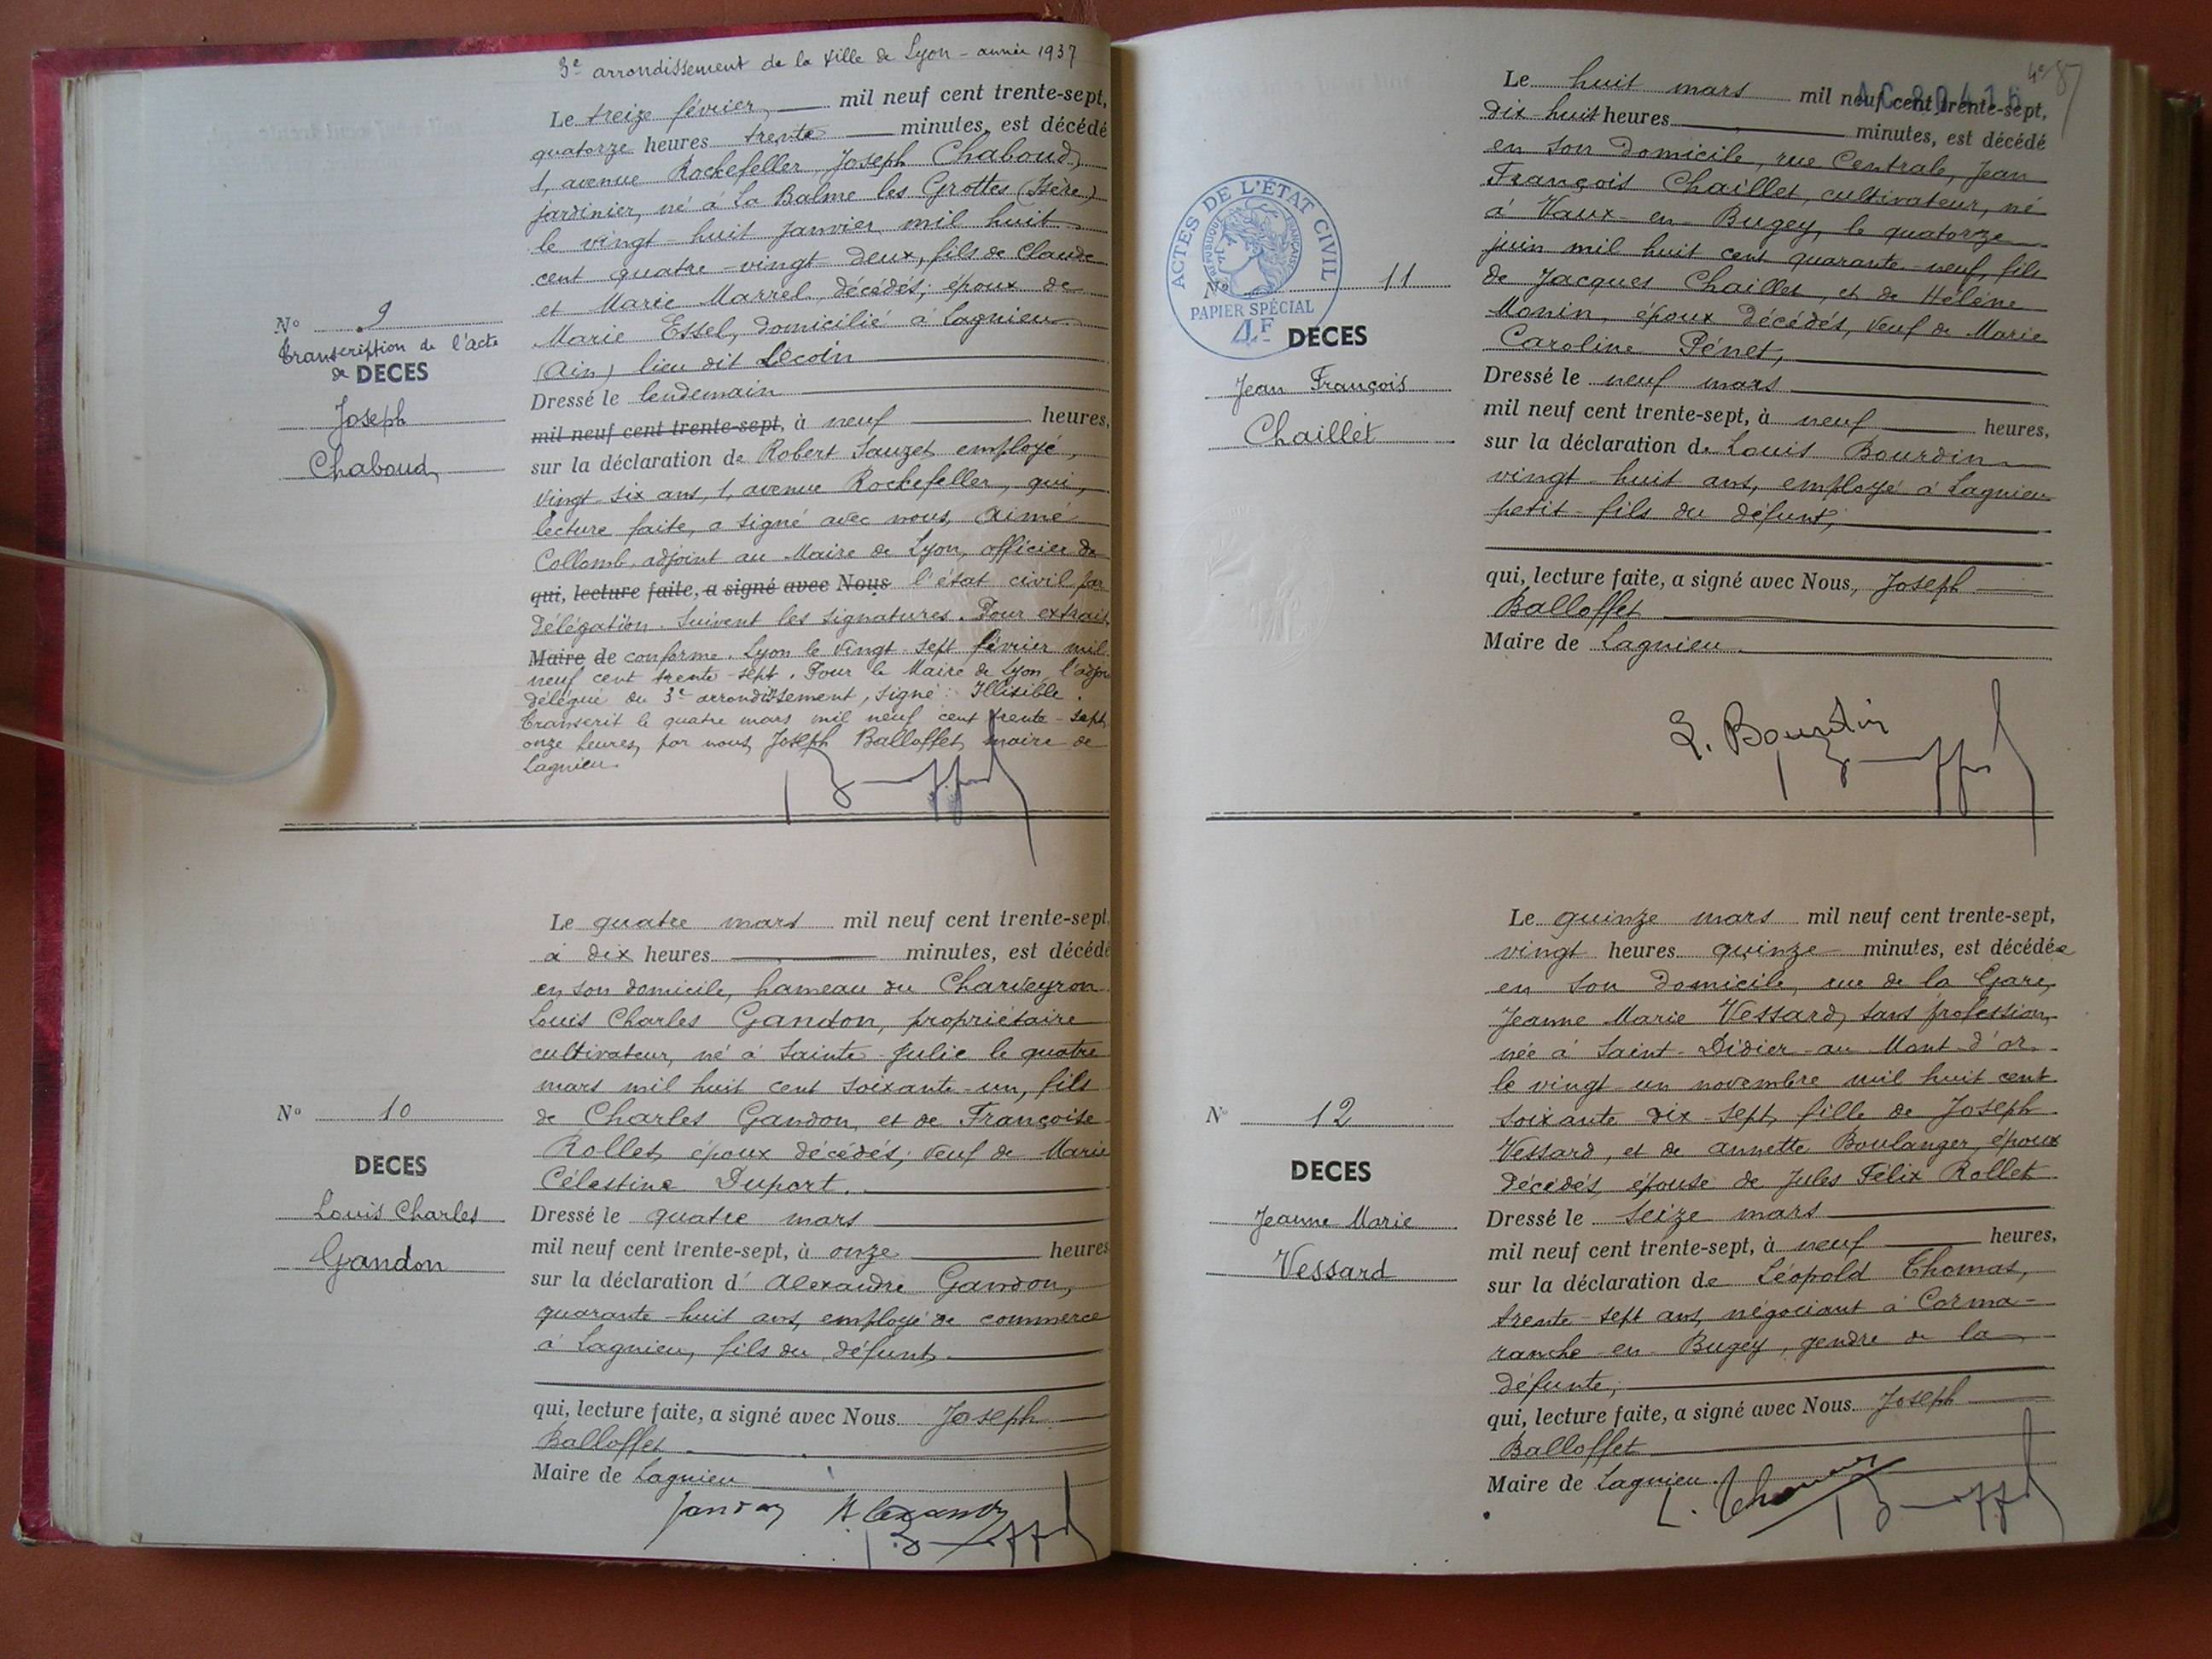 3e arrondissement de la ville de Lyon - année 1937
Le treize février, mil neuf cent trente-sept,
quatorze heures trente minutes, est décédé
1, avenue Rockefeller, Joseph Chaboud,
jardinier, né à La Balme les Grottes (Isère)
le vingt-huit Janvier mil huit
cent quatre-vingt-deux, fils de Claude
et Marie Marrel, décédés; époux de
Marie Essel, domicilié à Lagnieu
(Ain) lieu dit Lecoin
Dressé le lendemain
mil neuf cent trente-sept, à neuf heures,
sur la déclaration de Robert Sauzet, employé,
vingt-six ans, 1, avenue Rockefeller, qui,
lecture faite, a signé avec nous, Aimé
Collomb, adjoint au Maire de Lyon, officier de
qui, lecture faite, a signé avec Nous l'état civil par
délégation. Suivent les signatures. Pour extrait
Maire de conforme. Lyon le vingt-sept février mil
neuf cent trente-sept. Pour le Maire de Lyon, l'adjoi
délégué du 3e arrondissement, signé: Illisible.
Transcrit le quatre mars mil neuf cent trente-sept,
onze heures, par nous, Joseph Balloffet, maire de
Lagnieu.
No 9
Transcription de l'Acte
de DECES
Joseph
Chaboud
Le quatre mars mil neuf cent trente-sept,
à dix heures minutes, est décédé
en son domicile, hameau du Charveyron
Louis Charles Gandon, propriétaire
cultivateur, né à Sainte-Julie le quatre
mars mil huit cent soixante-un, fils
de Charles Gandon, et de Françoise
Rollet, époux décédés; veuf de Marie
Célestine Duport.
Dressé le quatre mars
mil neuf cent trente-sept, à onze heures
sur la déclaration d'Alexandre Gandon,
quarante-huit ans, employé de commerce
à Lagnieu, fils du défunt.
qui, lecture faite, a signé avec Nous Joseph
Balloffet
Maire de Lagnieu
Gandon Alexandre
No 10
DECES
Louis Charles
Gandon
Le huit mars mil neuf cent trente-sept,
dix-huit heures minutes, est décédé
en son domicile, rue Centrale, Jean
François Chaillet, cultivateur, né
à Vaux-en-Bugey, le quatorze
juin mil huit cent quarante-neuf, fils
de Jacques Chaillet, et de Hélène
Monin, époux décédés, veuf de Marie
Caroline Pénet,
Dressé le neuf mars
mil neuf cent trente-sept, à neuf heures,
sur la déclaration de Louis Bourdin
vingt-huit ans, employé à Lagnieu
petit-fils du défunt,
qui, lecture faite, a signé avec Nous, Joseph
Balloffet
Maire de Lagnieu
L. Bourdin
ACTES DE L'ÉTAT CIVIL
RÉPUBLIQUE FRANÇAISE
PAPIER SPÉCIAL
4F
No 11
DECES
Jean François
Chaillet
Le quinze mars mil neuf cent trente-sept,
vingt heures quinze minutes, est décédée
en son domicile, rue de la Gare,
Jeanne Marie Vessard, sans profession,
née à Saint-Didier-au-Mont d'or
le vingt-un novembre mil huit cent
soixante dix-sept, fille de Joseph
Vessard, et de Annette Boulanger, époux
décédés, épouse de Jules Félix Rollet
Dressé le seize mars
mil neuf cent trente-sept, à neuf heures,
sur la déclaration de Léopold Thomas,
trente-sept ans, négociant à Corma-
ranche-en-Bugey, gendre de la
défunte;
qui, lecture faite, a signé avec Nous Joseph
Balloffet
Maire de Lagnieu.
L. Thomas
No 12
DECES
Jeanne Marie
Vessard